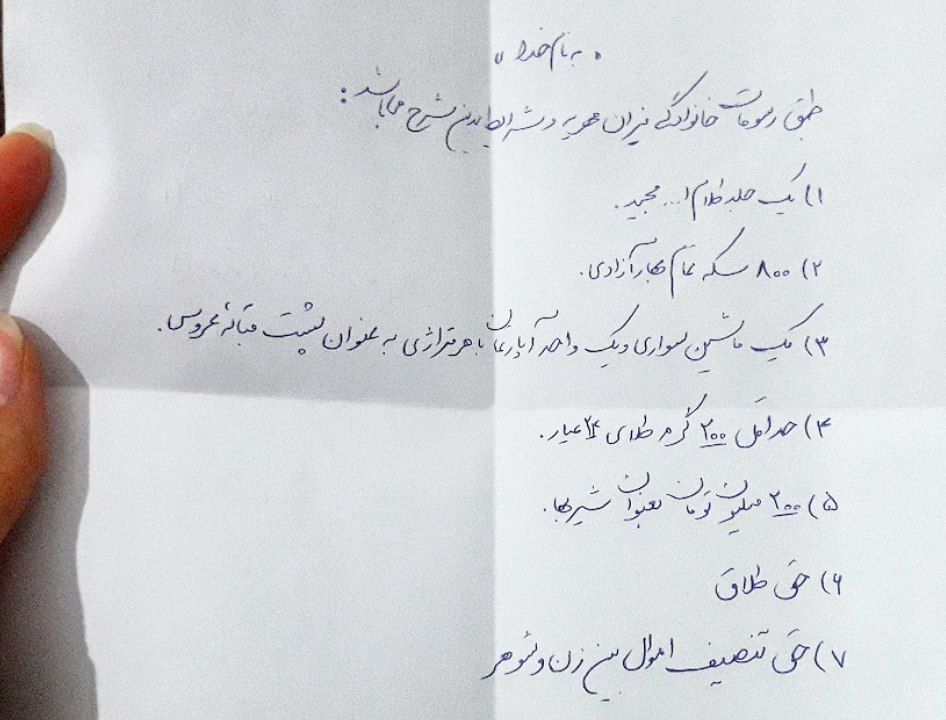 به نام خدا
طبق رسومات خانوادگی میزان مهریه و شرایط بدین شرح میباشد:
۱) یک جلد کلام ا... مجید.
۲) ۸۰۰ سکه تمام بهار آزادی.
۳) یک ماشین سواری و یک واحد آپارتمان با هر متراژی به عنوان پشت قباله عروس.
۴) حداقل ۲۰۰ گرم طلای ۲۴ عیار.
۵) ۲۰۰ میلیون تومان بعنوان شیربها.
۶) حق طلاق
۷) حق تنصیف اموال بین زن و شوهر